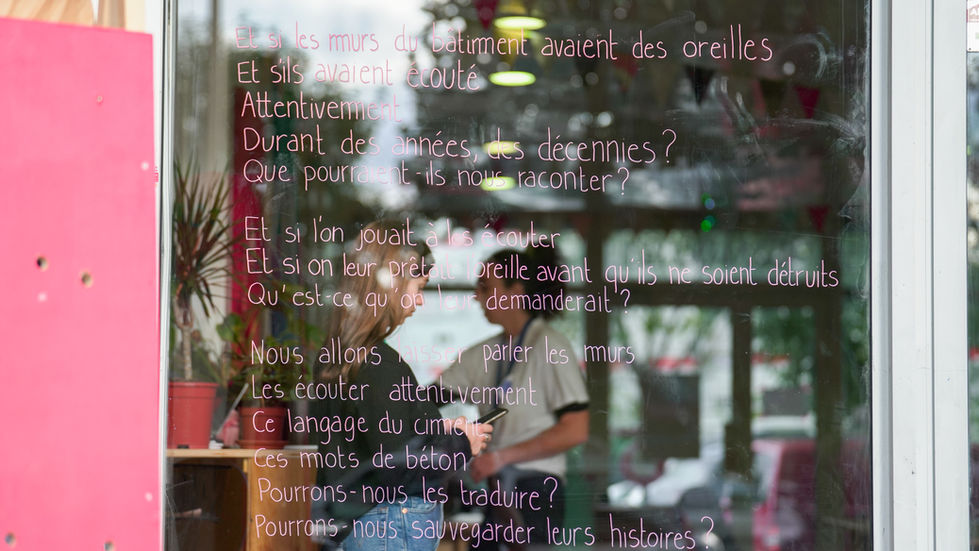 Et si les murs du bâtiment avaient des oreilles
Et s'ils avaient écouté
Attentivement
Durant des années, des décennies ?
Que pourraient-ils nous raconter ?
Et si l'on jouait à les écouter
Et si on leur prêtait l'oreille avant qu'ils ne soient détruits
Qu'est-ce qu'on leur demanderait ?
Nous allons laisser parler les murs
Les écouter attentivement
Ce langage du ciment
Ces mots de béton
Pourrons-nous les traduire ?
Pourrons-nous sauvegarder leurs histoires ?